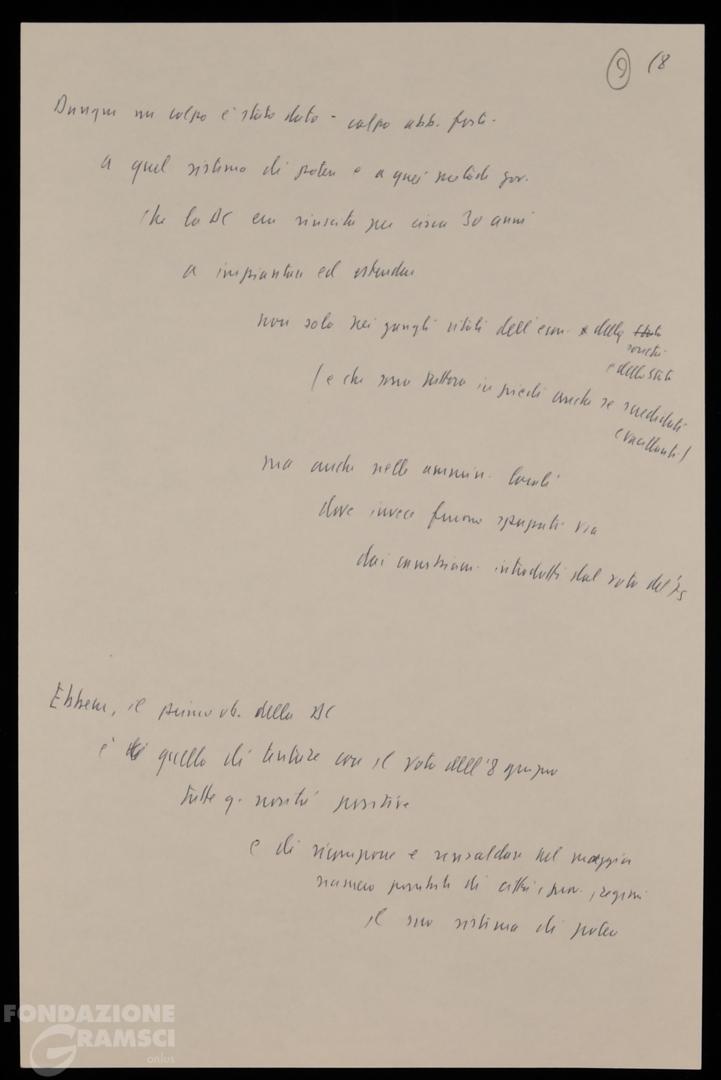 9 18
Dunque un colpo è stato dato - colpo abb. forte -
a quel sistema di potere e a quei metodi gov.
che la DC era riuscita per circa 30 anni
a impiantare ed estendere
non solo nei gangli vitali dell'econ. e della Stato
società
e dello Stato
(e che sono tuttora in piedi anche se screditati
e vacillanti)
ma anche nelle ammin. locali
dove invece furono spazzati via
dai cambiam. introdotti dal voto del '75
Ebbene, il primo ob. della DC
è quello di tentare con il voto dell'8 giugno
tutte q. novità positive
e di ricomporre e rinsaldare nel maggior
numero possibile di città, prov., regioni
il suo sistema di potere
FONDAZIONE
GRAMSCI
onlus